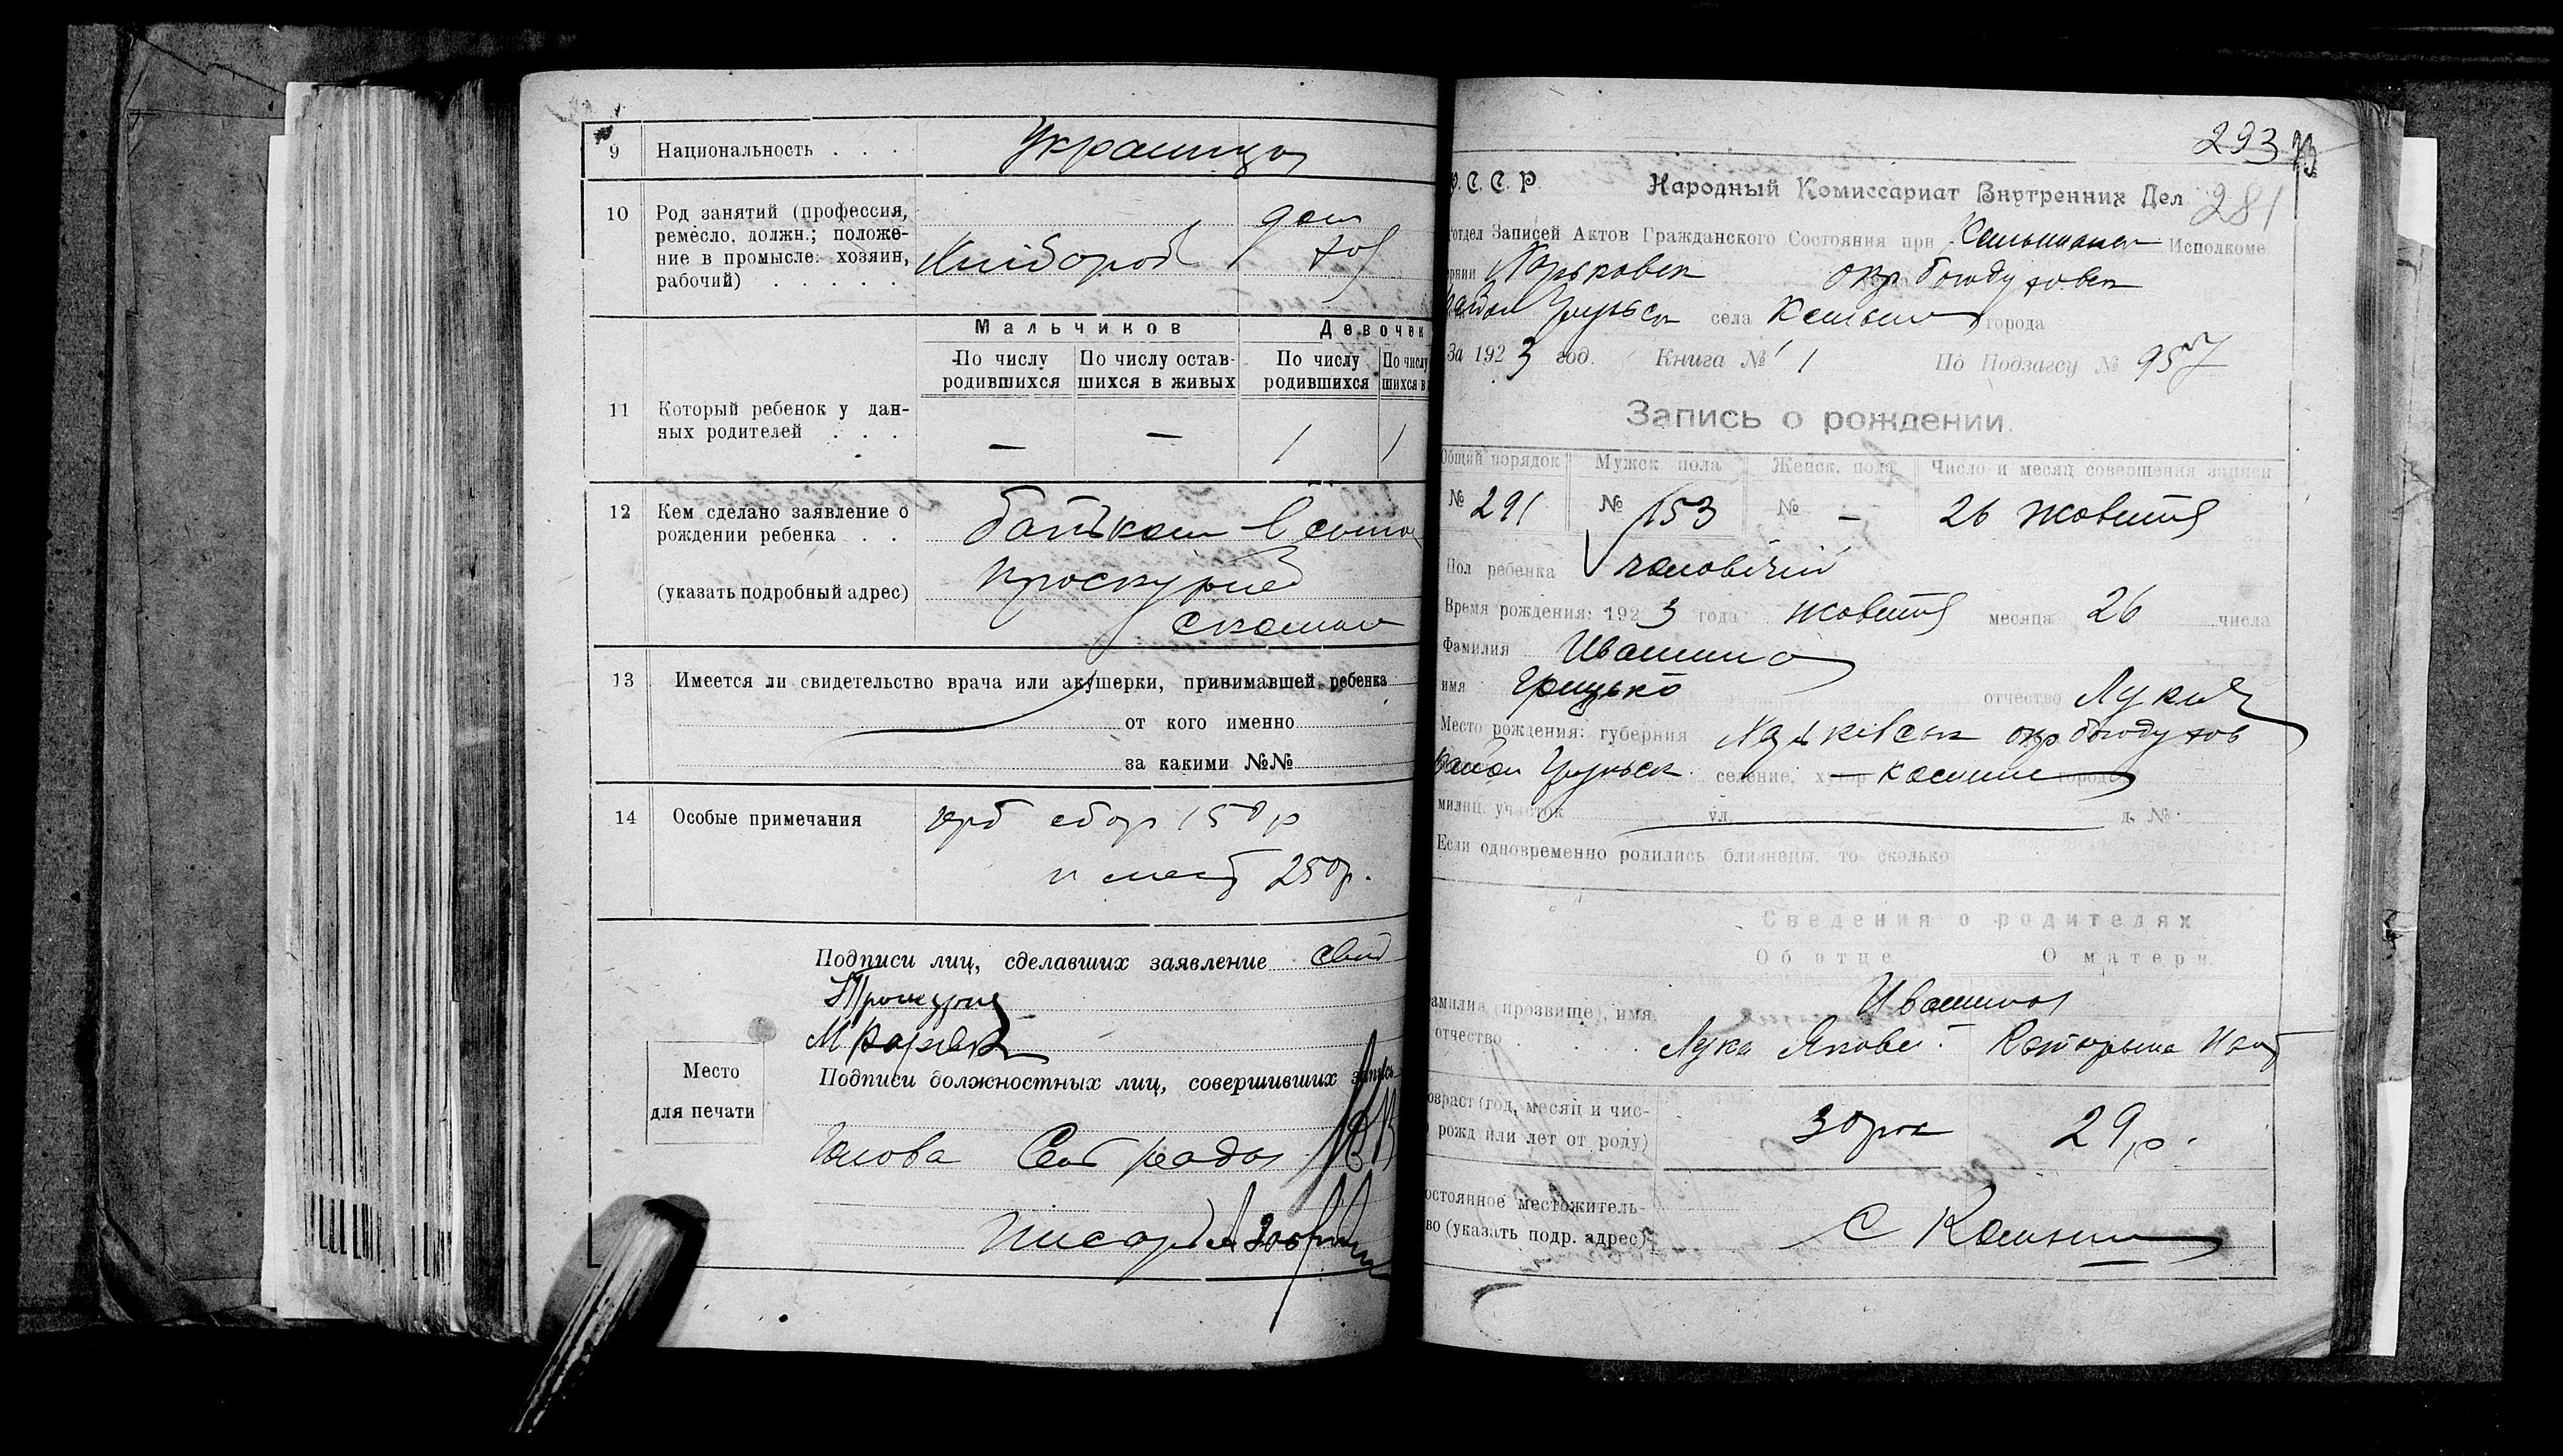 9 Национальность . . . Украинца
10 Род занятий (профессия,
ремесло, должн.; положе-
ние в промысле: хозяин,
рабочий) . . . . .
Хлібороб
дом
хоз
Мальчиков Девочек
По числу родившихся По числу остав-шихся в живых По числу родившихся По числу
11 Который ребенок у дан-
ных родителей . . . — — 1 1
12 Кем сделано заявление о
рождении ребенка . .
(указать подробный адрес)
батьком
13 Имеется ли свидетельство врача или акушерки, принимавшей ребенка
от кого именно
за какими №№
14 Особые примечания
герб сбор 150 р
и мест 250 р.
Подписи лиц, сделавших заявление свид
Место
для печати
Подписи должностных лиц, совершивших запись
Голова Сел ради
писарь
293
281
С. С. Р. Народный Комиссариат Внутренних Дел
отдел Записей Актов Гражданского Состояния при Исполкоме
Харьковск окр. богодуховск
села города
За 1923 год. Книга № 1 По Подзагсу № 957
Запись о рождении.
Общий порядок Мужск. пола Женск. пола Число и месяц совершения записи
№ 291 № 153 № — 26 жовтня
Пол ребенка чоловічий
Время рождения: 1923 года жовтня месяца 26 числа
Фамилия Ивашина
имя Грицько отчество Лукич
Место рождения: губерния Харьківськ окр. богодухов
район селение, хутор города
милиц. участок ул. д. №
Если одновременно родились близнецы, то сколько
Сведения о родителях
Об отце О матери.
амилия (прозвище), имя Ивашина
отчество . . . Лука Яковл. Катерина
озраст (год, месяц и чис-
рожд или лет от роду) 30 рок 29 р.
остоянное местожитель-
во (указать подр. адрес)